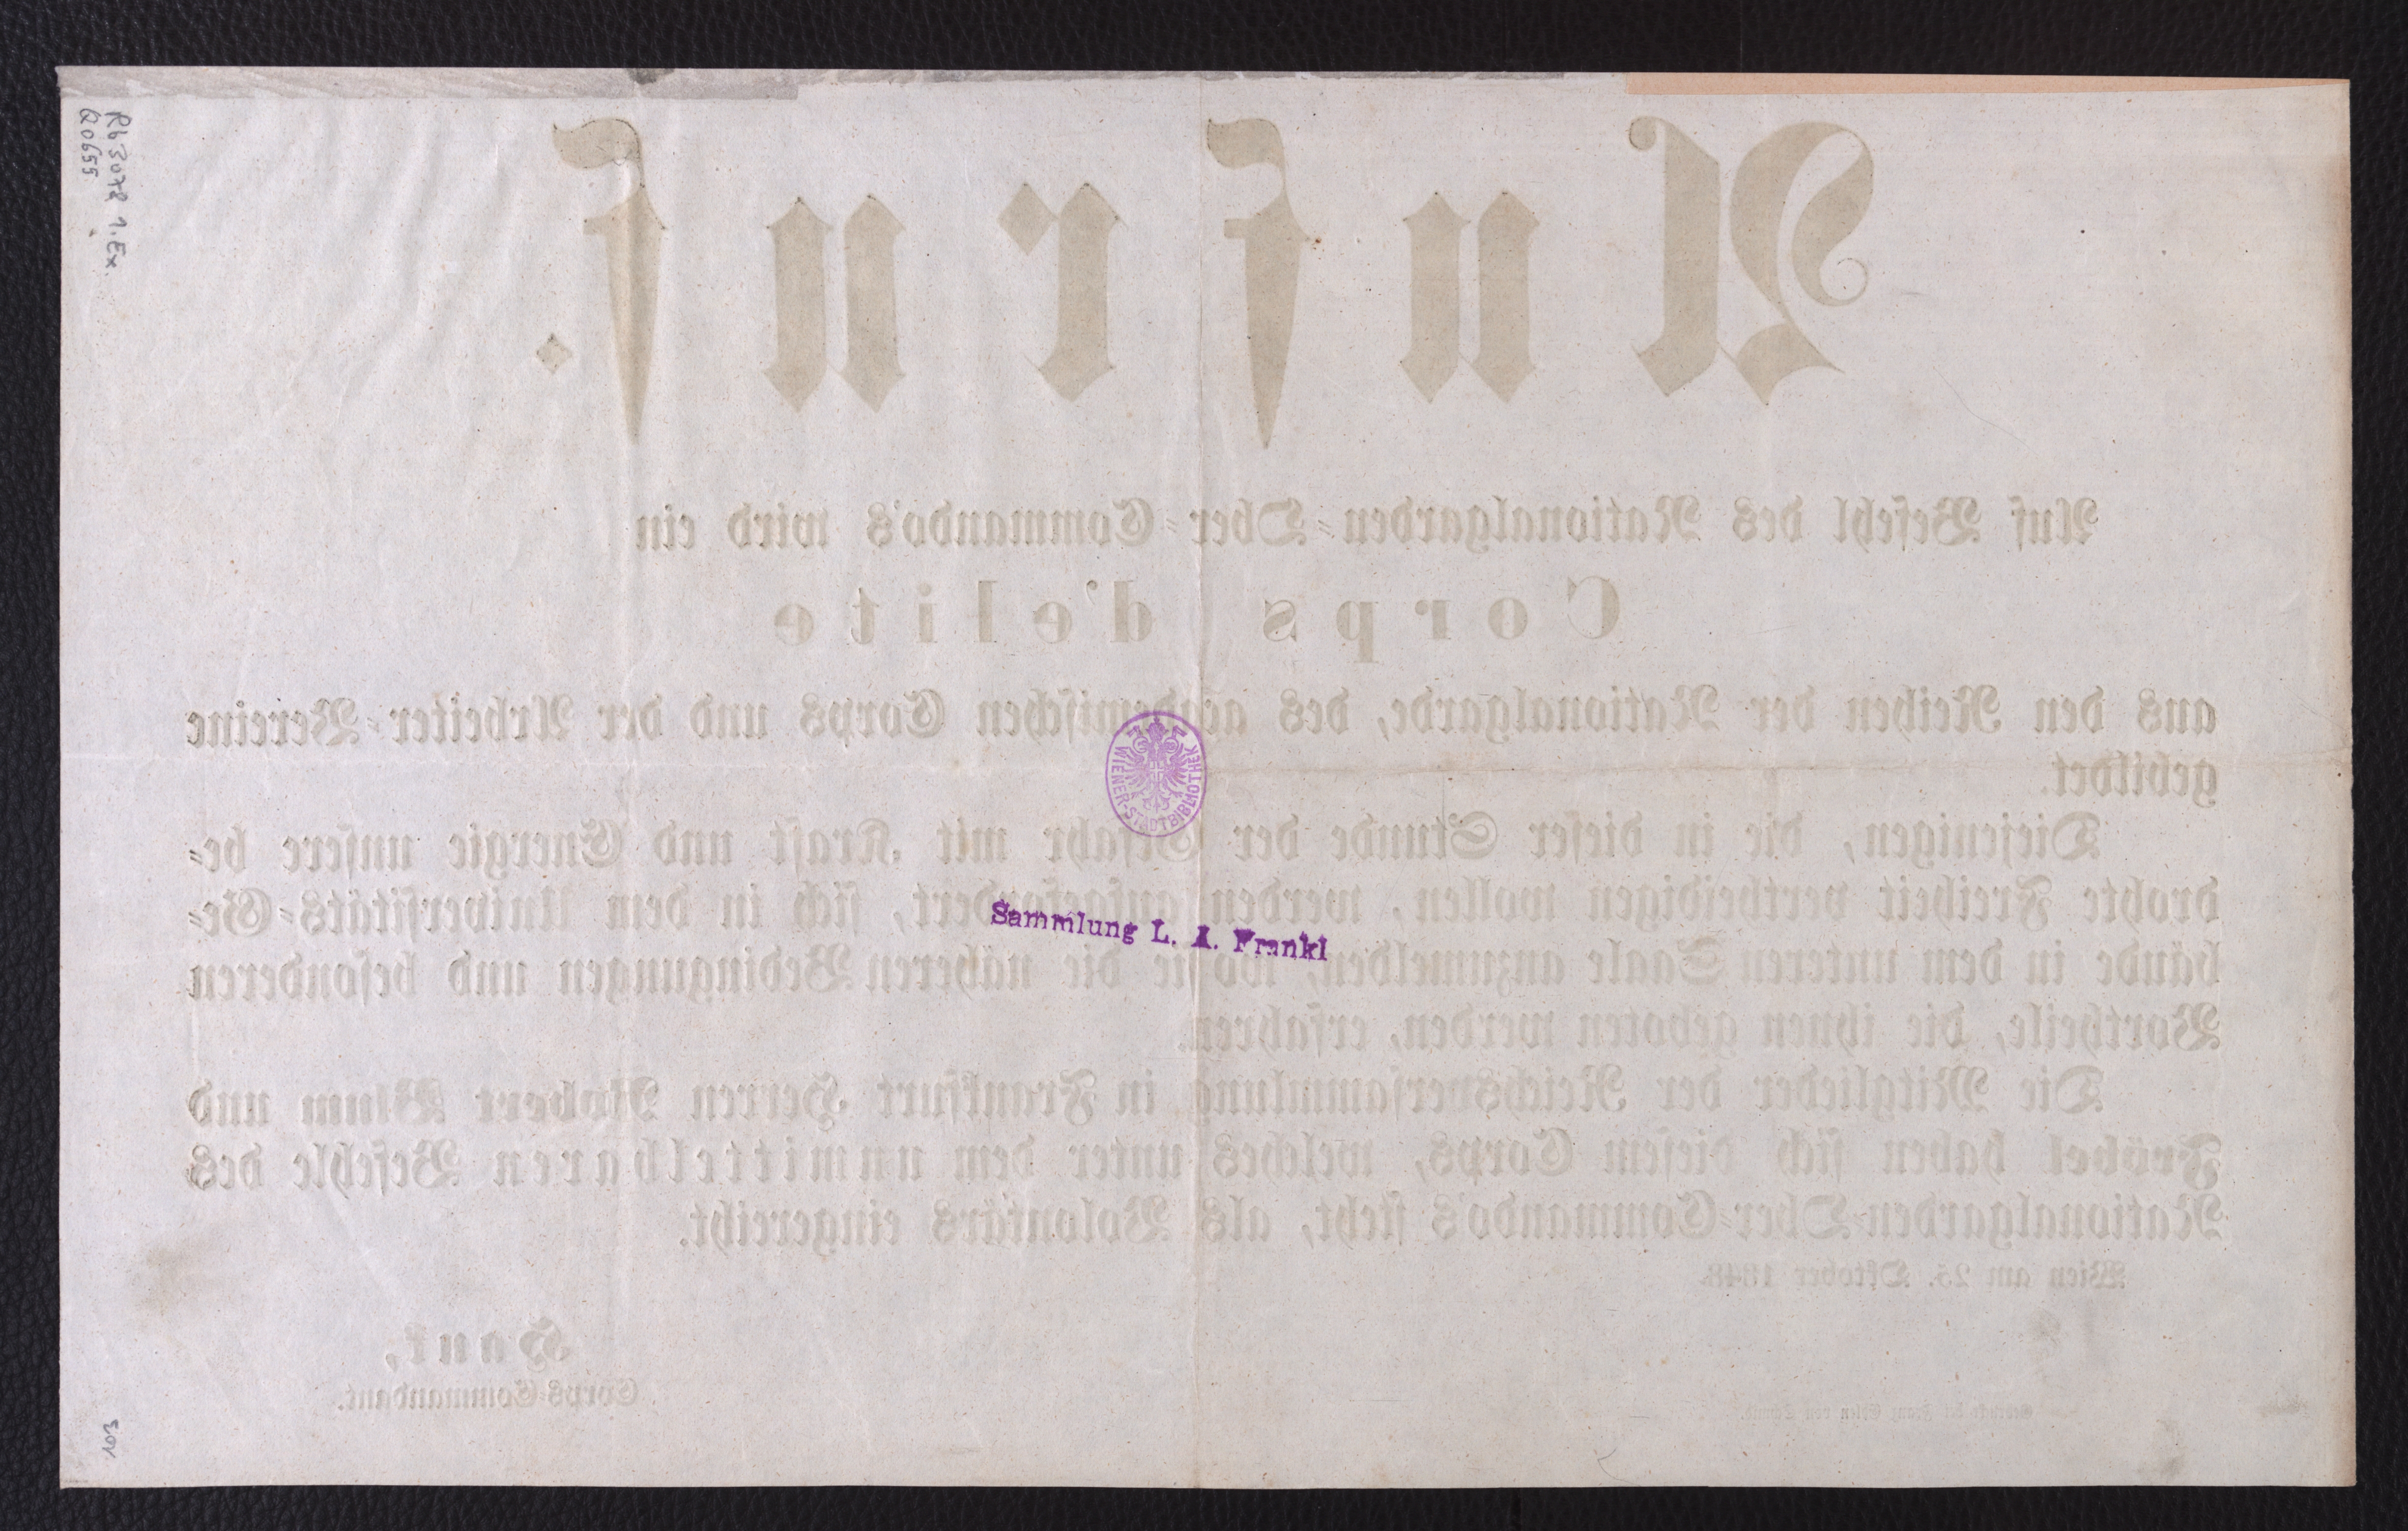 Rb 3078 1. Ex.
Q 0655
Aufruf.
Auf Befehl des Nationalgarden-Ober-Commando's wird ein
Corps d'elite
aus den Reihen der Nationalgarde, des academischen Corps und der Arbeiter-Vereine
gebildet.
Diejenigen, die in dieser Stunde der Gefahr mit Kraft und Energie unsere be-
drohte Freiheit vertheidigen wollen, werden aufgefordert, sich in dem Universitäts-Ge-
bäude in dem unteren Saale anzumelden, wo sie die näheren Bedingungen und besonderen
Vortheile, die ihnen geboten werden, erfahren.
Die Mitglieder der Reichsversammlung in Frankfurt Herren Robert Blum und
Fröbel haben sich diesem Corps, welches unter dem unmittelbaren Befehle des
Nationalgarden-Ober-Commando's steht, als Volontärs eingereiht.
Wien am 25. Oktober 1848.
Hauk,
Corps-Commandant.
Gedruckt bei Franz Edlen von Schmid.
WIENER-STADTBIBLIOTHEK
Sammlung L. A. Frankl